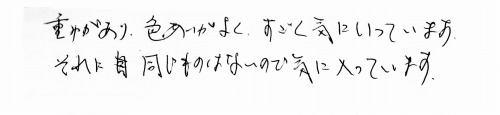 重みがあり、色あいがよく、すごく気にいっています。
それに 同じものはないので気に入っています。